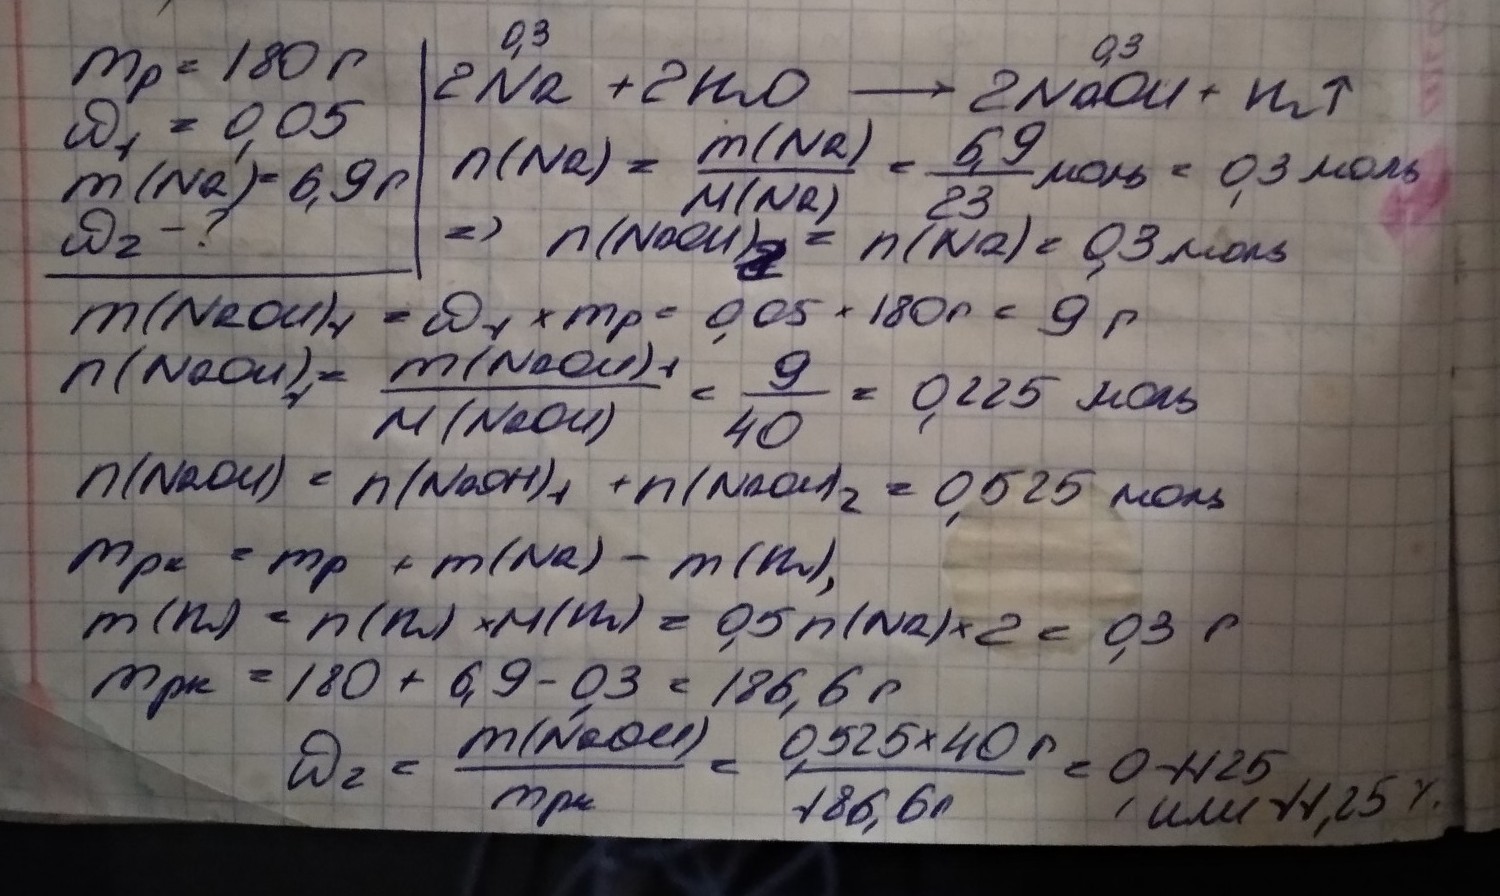 0,3 0,3
mр = 180 г
2Na + 2H₂O → 2NaOH + H₂↑
ω₁ = 0,05
m(Na) = 6,9 г
ω₂ - ?
n(Na) = m(Na) / M(Na) = 6,9 / 23 моль = 0,3 моль
=> n(NaOH)₂ = n(Na) = 0,3 моль
m(NaOH)₁ = ω₁ × mр = 0,05 × 180 г = 9 г
n(NaOH)₁ = m(NaOH)₁ / M(NaOH) = 9 / 40 = 0,225 моль
n(NaOH) = n(NaOH)₁ + n(NaOH)₂ = 0,525 моль
mрк = mр + m(Na) - m(H₂),
m(H₂) = n(H₂) × M(H₂) = 0,5 n(Na) × 2 = 0,3 г
mрк = 180 + 6,9 - 0,3 = 186,6 г
ω₂ = m(NaOH) / mрк = 0,525 × 40 г / 186,6 г = 0,1125
или 11,25 %.